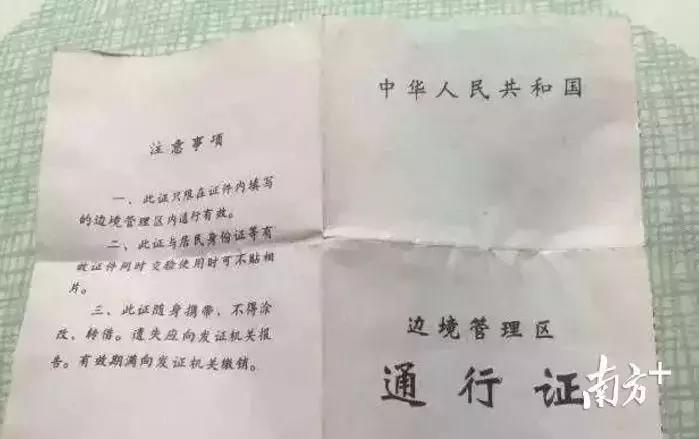 注意事项
一、此证只限在证件内填写
的边境管理区内通行有效。
二、此证与居民身份证等有
效证件同时交验使用时可不贴相
片。
三、此证随身携带,不得涂
改、转借。遗失应向发证机关报
告。有效期满向发证机关缴销。
中华人民共和国
边境管理区
通行证
南方+